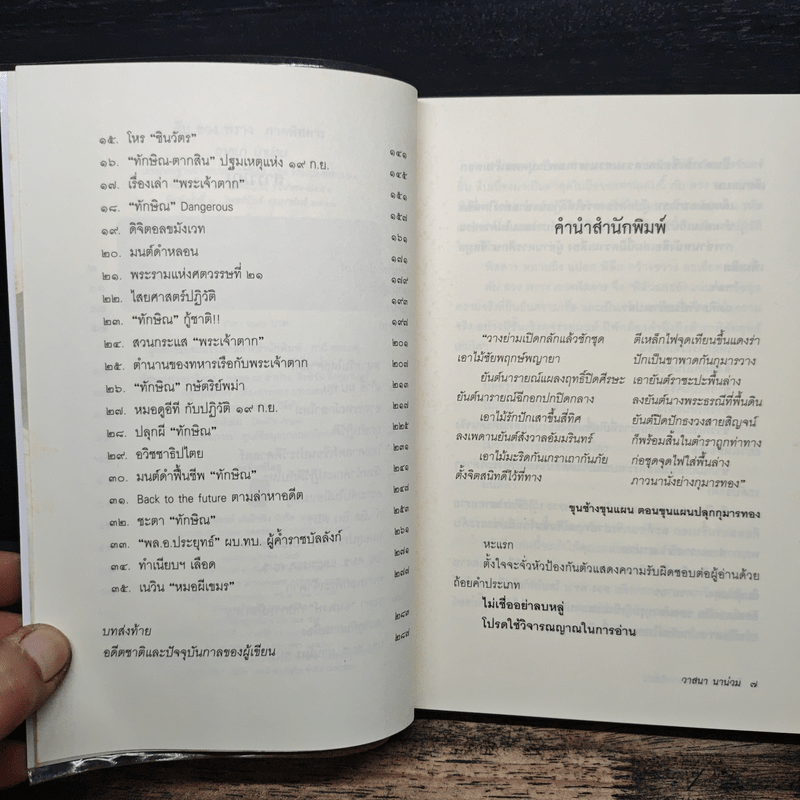 ๑๕. โหร “ชินวัตร” ๑๔๑
๑๖. “ทักษิณ-ตากสิน” ปฐมเหตุแห่ง ๑๙ ก.ย. ๑๔๕
๑๗. เรื่องเล่า “พระเจ้าตาก” ๑๕๑
๑๘. “ทักษิณ” Dangerous ๑๕๗
๑๙. ดิจิตอลขมังเวท ๑๖๑
๒๐. มนต์ดำหลอน ๑๗๑
๒๑. พระรามแห่งศตวรรษที่ ๒๑ ๑๗๙
๒๒. ไสยศาสตร์ปฏิวัติ ๑๙๓
๒๓. “ทักษิณ” กู้ชาติ!! ๑๙๘
๒๔. สวนกระแส “พระเจ้าตาก” ๒๐๑
๒๕. ตำนานของทหารเรือกับพระเจ้าตาก ๒๐๗
๒๖. “ทักษิณ” กษัตริย์พม่า ๒๑๓
๒๗. หมอดูอีที กับปฏิวัติ ๑๙ ก.ย. ๒๑๗
๒๘. ปลุกผี “ทักษิณ” ๒๒๕
๒๙. อวิชชาธิปไตย ๒๓๑
๓๐. มนต์ดำฟื้นชีพ “ทักษิณ” ๒๔๑
๓๑. Back to the future ตามล่าหาอดีต ๒๔๗
๓๒. ชะตา “ทักษิณ” ๒๕๓
๓๓. “พล.อ.ประยุทธ์” ผบ.ทบ. ผู้ค้ำราชบัลลังก์ ๒๖๑
๓๔. ทำเนียบฯ เลือด ๒๗๑
๓๕. เนวิน “หมอผีเขมร” ๒๗๗
บทส่งท้าย ๒๘๓
อดีตชาติและปัจจุบันกาลของผู้เขียน ๒๘๗
คำนำสำนักพิมพ์
“วางย่ามเปิดกลักแล้วชักชุด ตีเหล็กไฟจุดเทียนขึ้นแดงร่า
เอาไม้ชัยพฤกษ์พญายา ปักเป็นขาพาดกันกุมารวาง
ยันต์นารายณ์แผลงฤทธิ์ปิดศีรษะ เอายันต์ราชะปะพื้นล่าง
ยันต์นารายณ์ฉีกอกปกปิดกลาง ลงยันต์นางพระธรณีที่พื้นดิน
เอาไม้รักปักเสาขึ้นสี่ทิศ ยันต์ปิดปักธงวงสายสิญจน์
ลงเพดานยันต์สังวาลอัมมรินทร์ ก็พร้อมสิ้นในตำราถูกท่าทาง
เอาไม้มะริดกันเกราเถากันภัย ก่อชุดจุดไฟใส่พื้นล่าง
ตั้งจิตสนิทดีไว้ที่ทาง ภาวนานั่งย่างกุมารทอง”
ขุนช้างขุนแผน ตอนขุนแผนปลุกกุมารทอง
หะแรก
ตั้งใจจะจั่วหัวป้องกันตัวแสดงความรับผิดชอบต่อผู้อ่านด้วย
ถ้อยคำประเภท
ไม่เชื่ออย่าลบหลู่
โปรดใช้วิจารณญาณในการอ่าน
วาสนา นาน่วม ๗